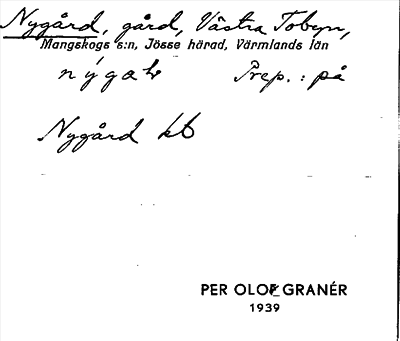 Nygård, gård, Västra Tobyn,
Mangskogs s:n, Jösse härad, Värmlands län
Prep.: på
Nygård kb
PER OLOF GRANÉR
1939